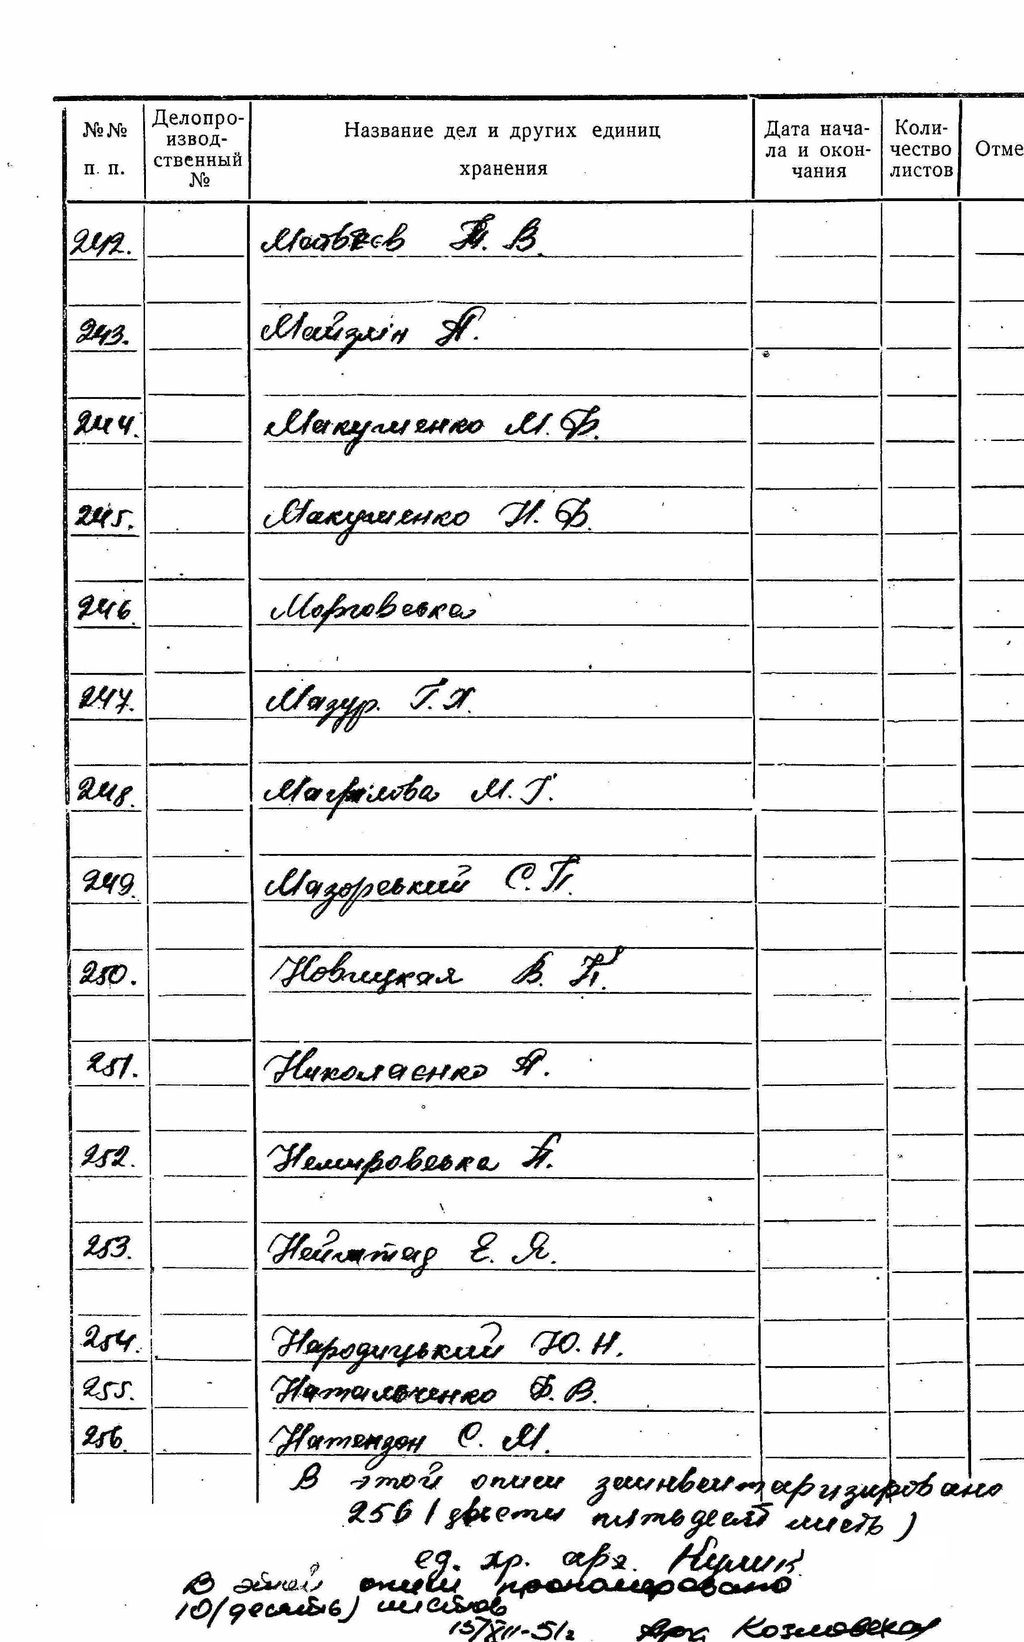 №№ п. п.
Делопро-
извод-
ственный
№
Название дел и других единиц
хранения
Дата нача-
ла и окон-
чания
Коли-
чество
листов
Отме
242. Матвєєв П. В.
243. Майзлін П.
244. Макушенко М. Ф.
245. Макушенко Н. Ф.
246. Морговська
247. Мазур. Г. Х.
248. Магрилова М. Г.
249. Мазорський С. П.
250. Новицкая В. П.
251. Николаєнко А.
252. Немировська П.
253. Нейштад Е. Я.
254. Народицький Ю. Н.
255. Натальченко Ф. В.
256. Натензон С. М.
В этой описи заинвентаризировано
256 (двести пятьдесят шесть)
ед. хр. арх. Кулик
В этой описи пронумеровано
10 (десять) листов
15/XII-51г Арх Козловская